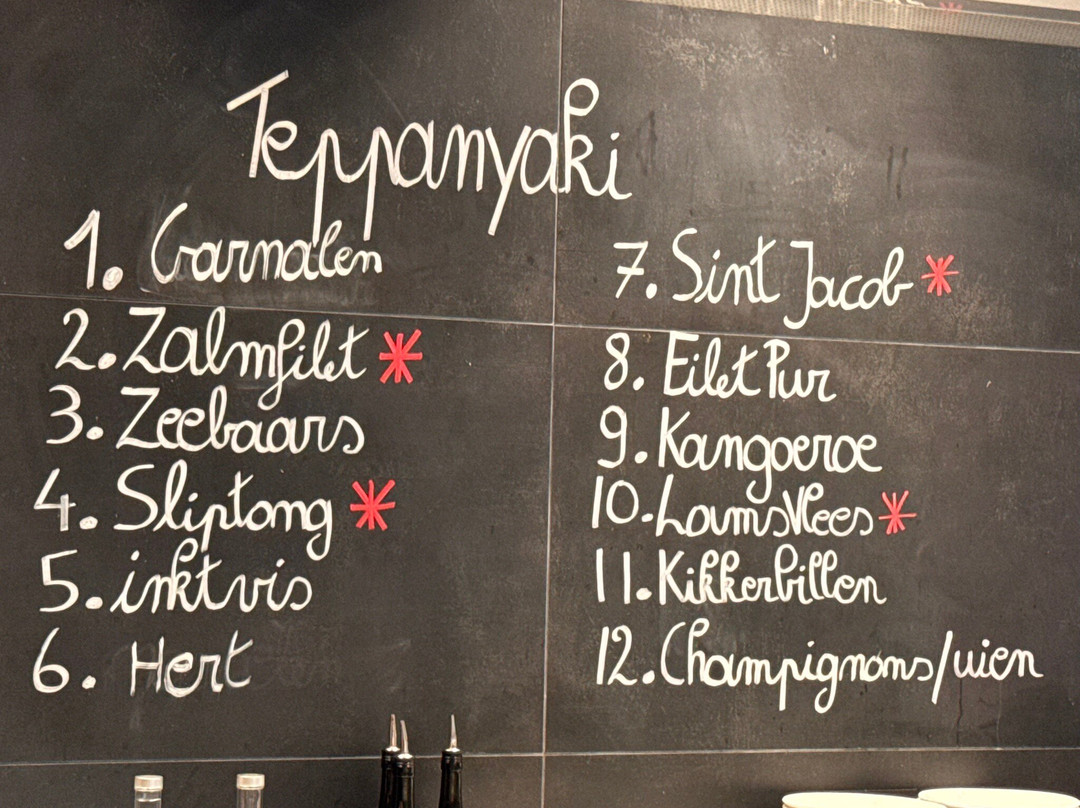 Teppanyaki
1. Garnalen
2. Zalmfilet *
3. Zeebaars
4. Sliptong *
5. inktvis
6. Hert
7. Sint Jacob *
8. Filet Pur
9. Kangoeroe
10. LamsVlees *
11. Kikkerbillen
12. Champignons/uien